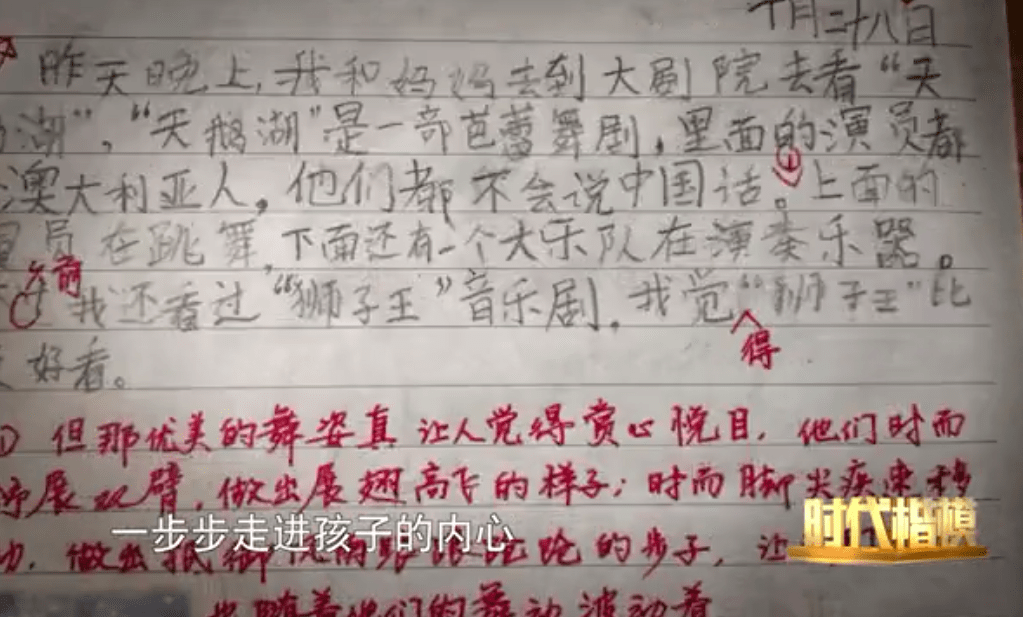 十月二十八日
昨天晚上,我和妈妈去到大剧院去看“天
湖”,“天鹅湖”是一部芭蕾舞剧,里面的演员都
澳大利亚人,他们都不会说中国话。①上面的
员在跳舞,下面还有一个大乐队在演奏乐器。
前
我还看过“狮子王”音乐剧,我觉“狮子王”比
得
好看。
① 但那优美的舞姿真让人觉得赏心悦目,他们时而
展双臂,做出展翅高飞的样子;时而脚尖疾速移
动,做出 的步子,让
一步步走进孩子的内心
时代楷模
随着他们的舞动波动着